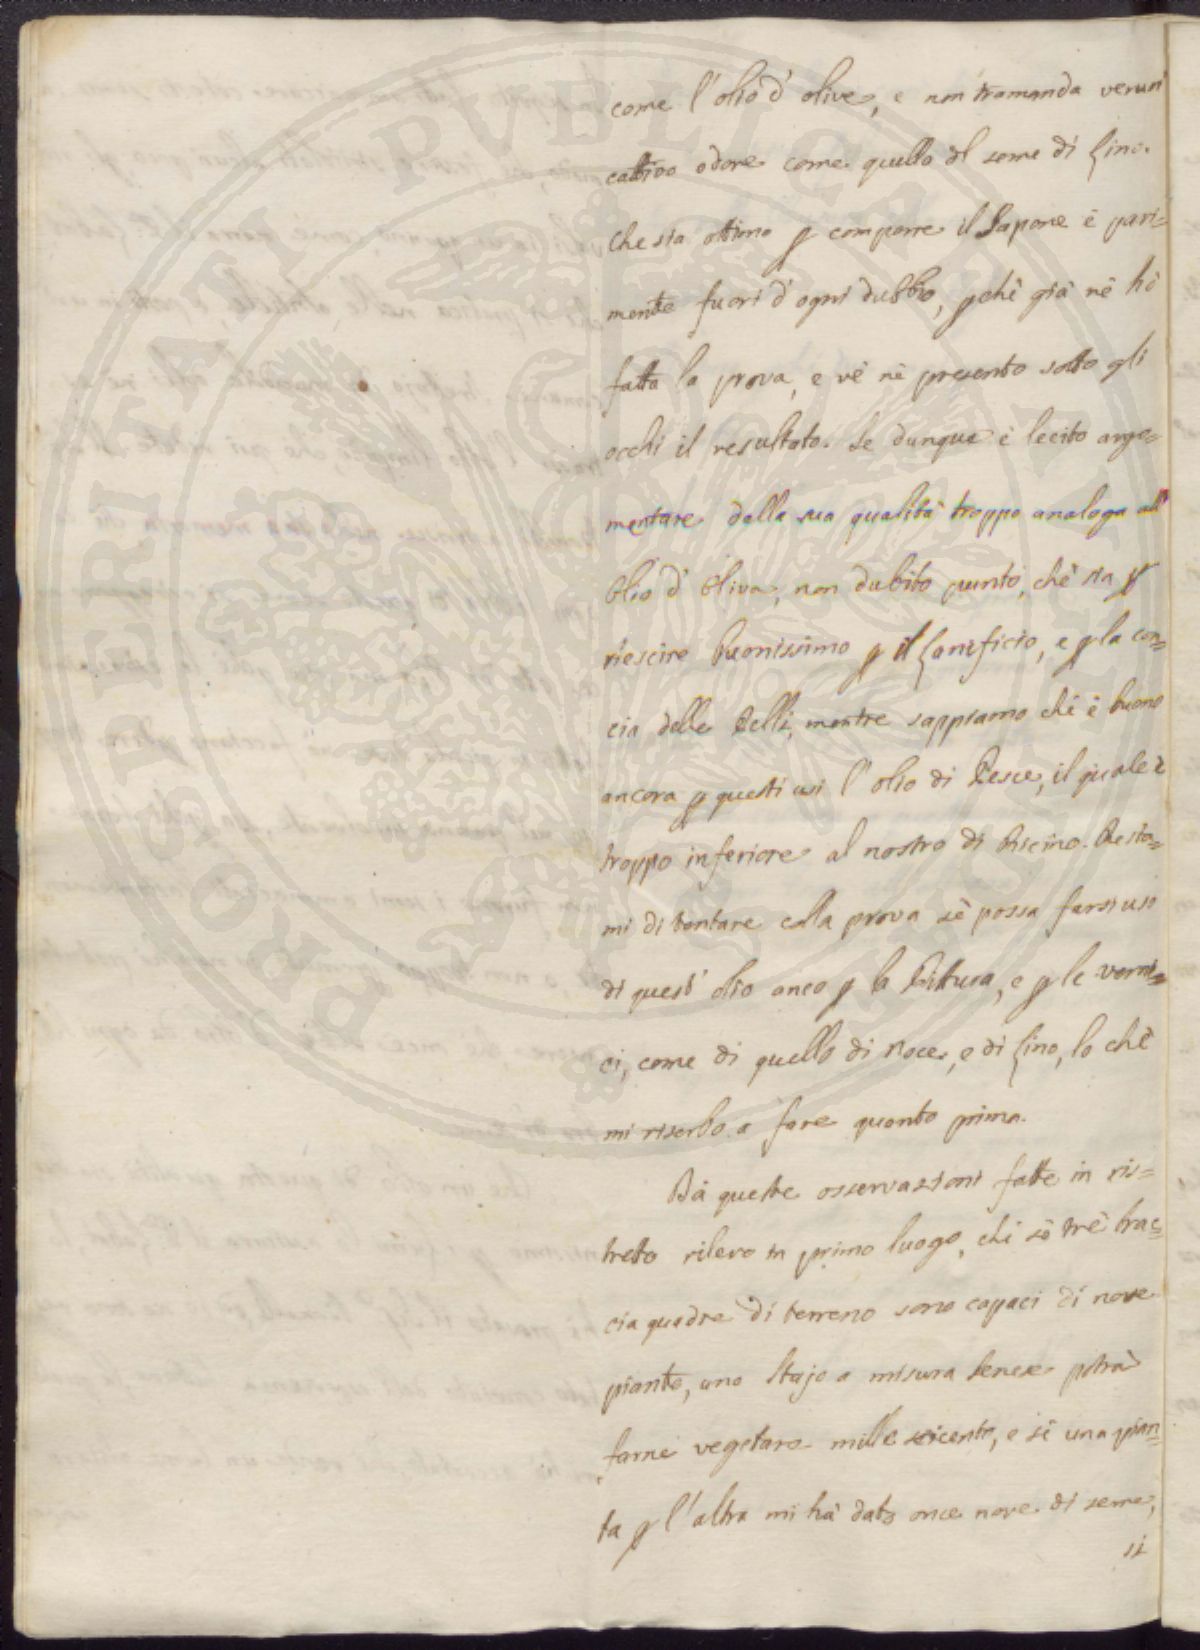 come l'olio d'olive, e non tramanda verun
cattivo odore come quello del seme di Lino.
Che sia ottimo p comporre il Sapone è pari=
mente fuori d'ogni dubbio, pchè già nè hò
fatta la prova, e vè nè presento sotto gli
occhi il resultato. Se dunque è lecito argo=
mentare dalla sua qualità troppo analoga all'
Olio d'Oliva, non dubito punto, chè sia p
riescire buonissimo p il Lanificio, e p la con=
cia delle Pelli, mentre sappiamo chè è buono
ancora p questi usi l'olio di Pesce, il quale è
troppo inferiore al nostro di Ricino. Resta=
mi di tentare colla prova sè possa farsi uso
di quest'olio anco p la Pittura, e p le verni=
ci, come di quello di Noce, e di Lino, lo chè
mi riserbo a fare quanto prima.
Dà queste osservazioni fatte in ris=
treto rilevo in primo luogo, chè sè trè brac=
cia quadre di terreno sono capaci di nove
piante, uno Stajo a misura Senese potrà
farne vegetare mille seicento, e sè una pian=
ta p l'altra mi hà dato once nove di seme,
si
PROSPERITATI PVBLICAE